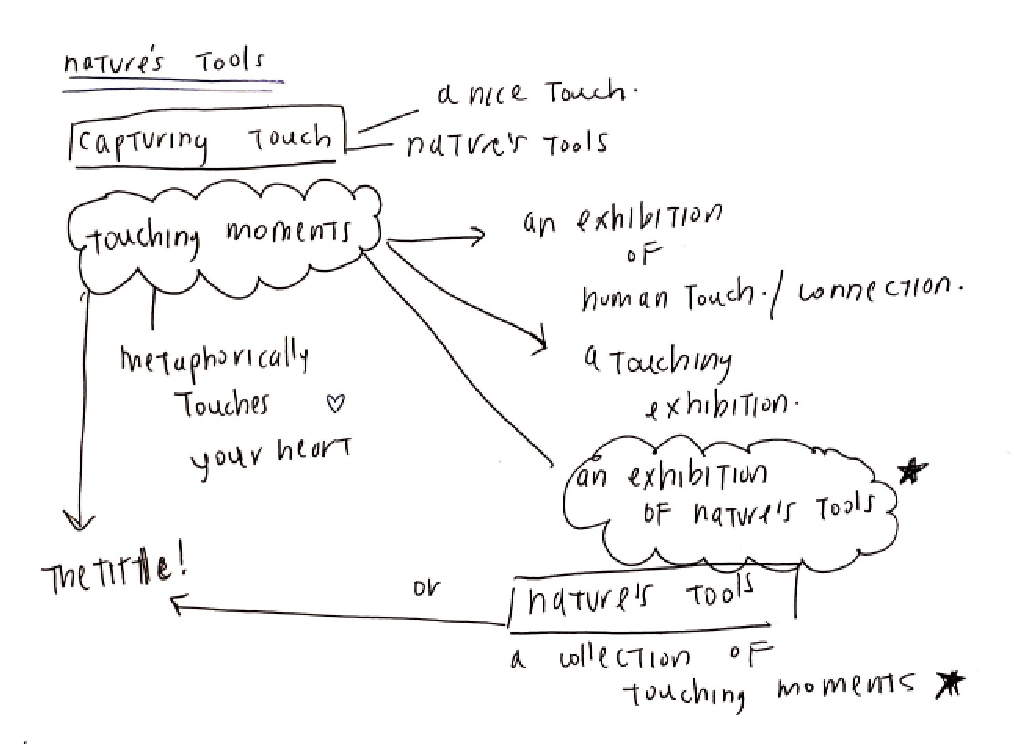 nature's Tools
a nice Touch.
capturing Touch
nature's Tools
touching moments
an exhibition
of
human Touch./connection.
metaphorically
Touches ♡
your heart
a Touching
exhibition.
an exhibition ★
of nature's Tools
The Tittle!
or
nature's Tools
a collection of
touching moments ★